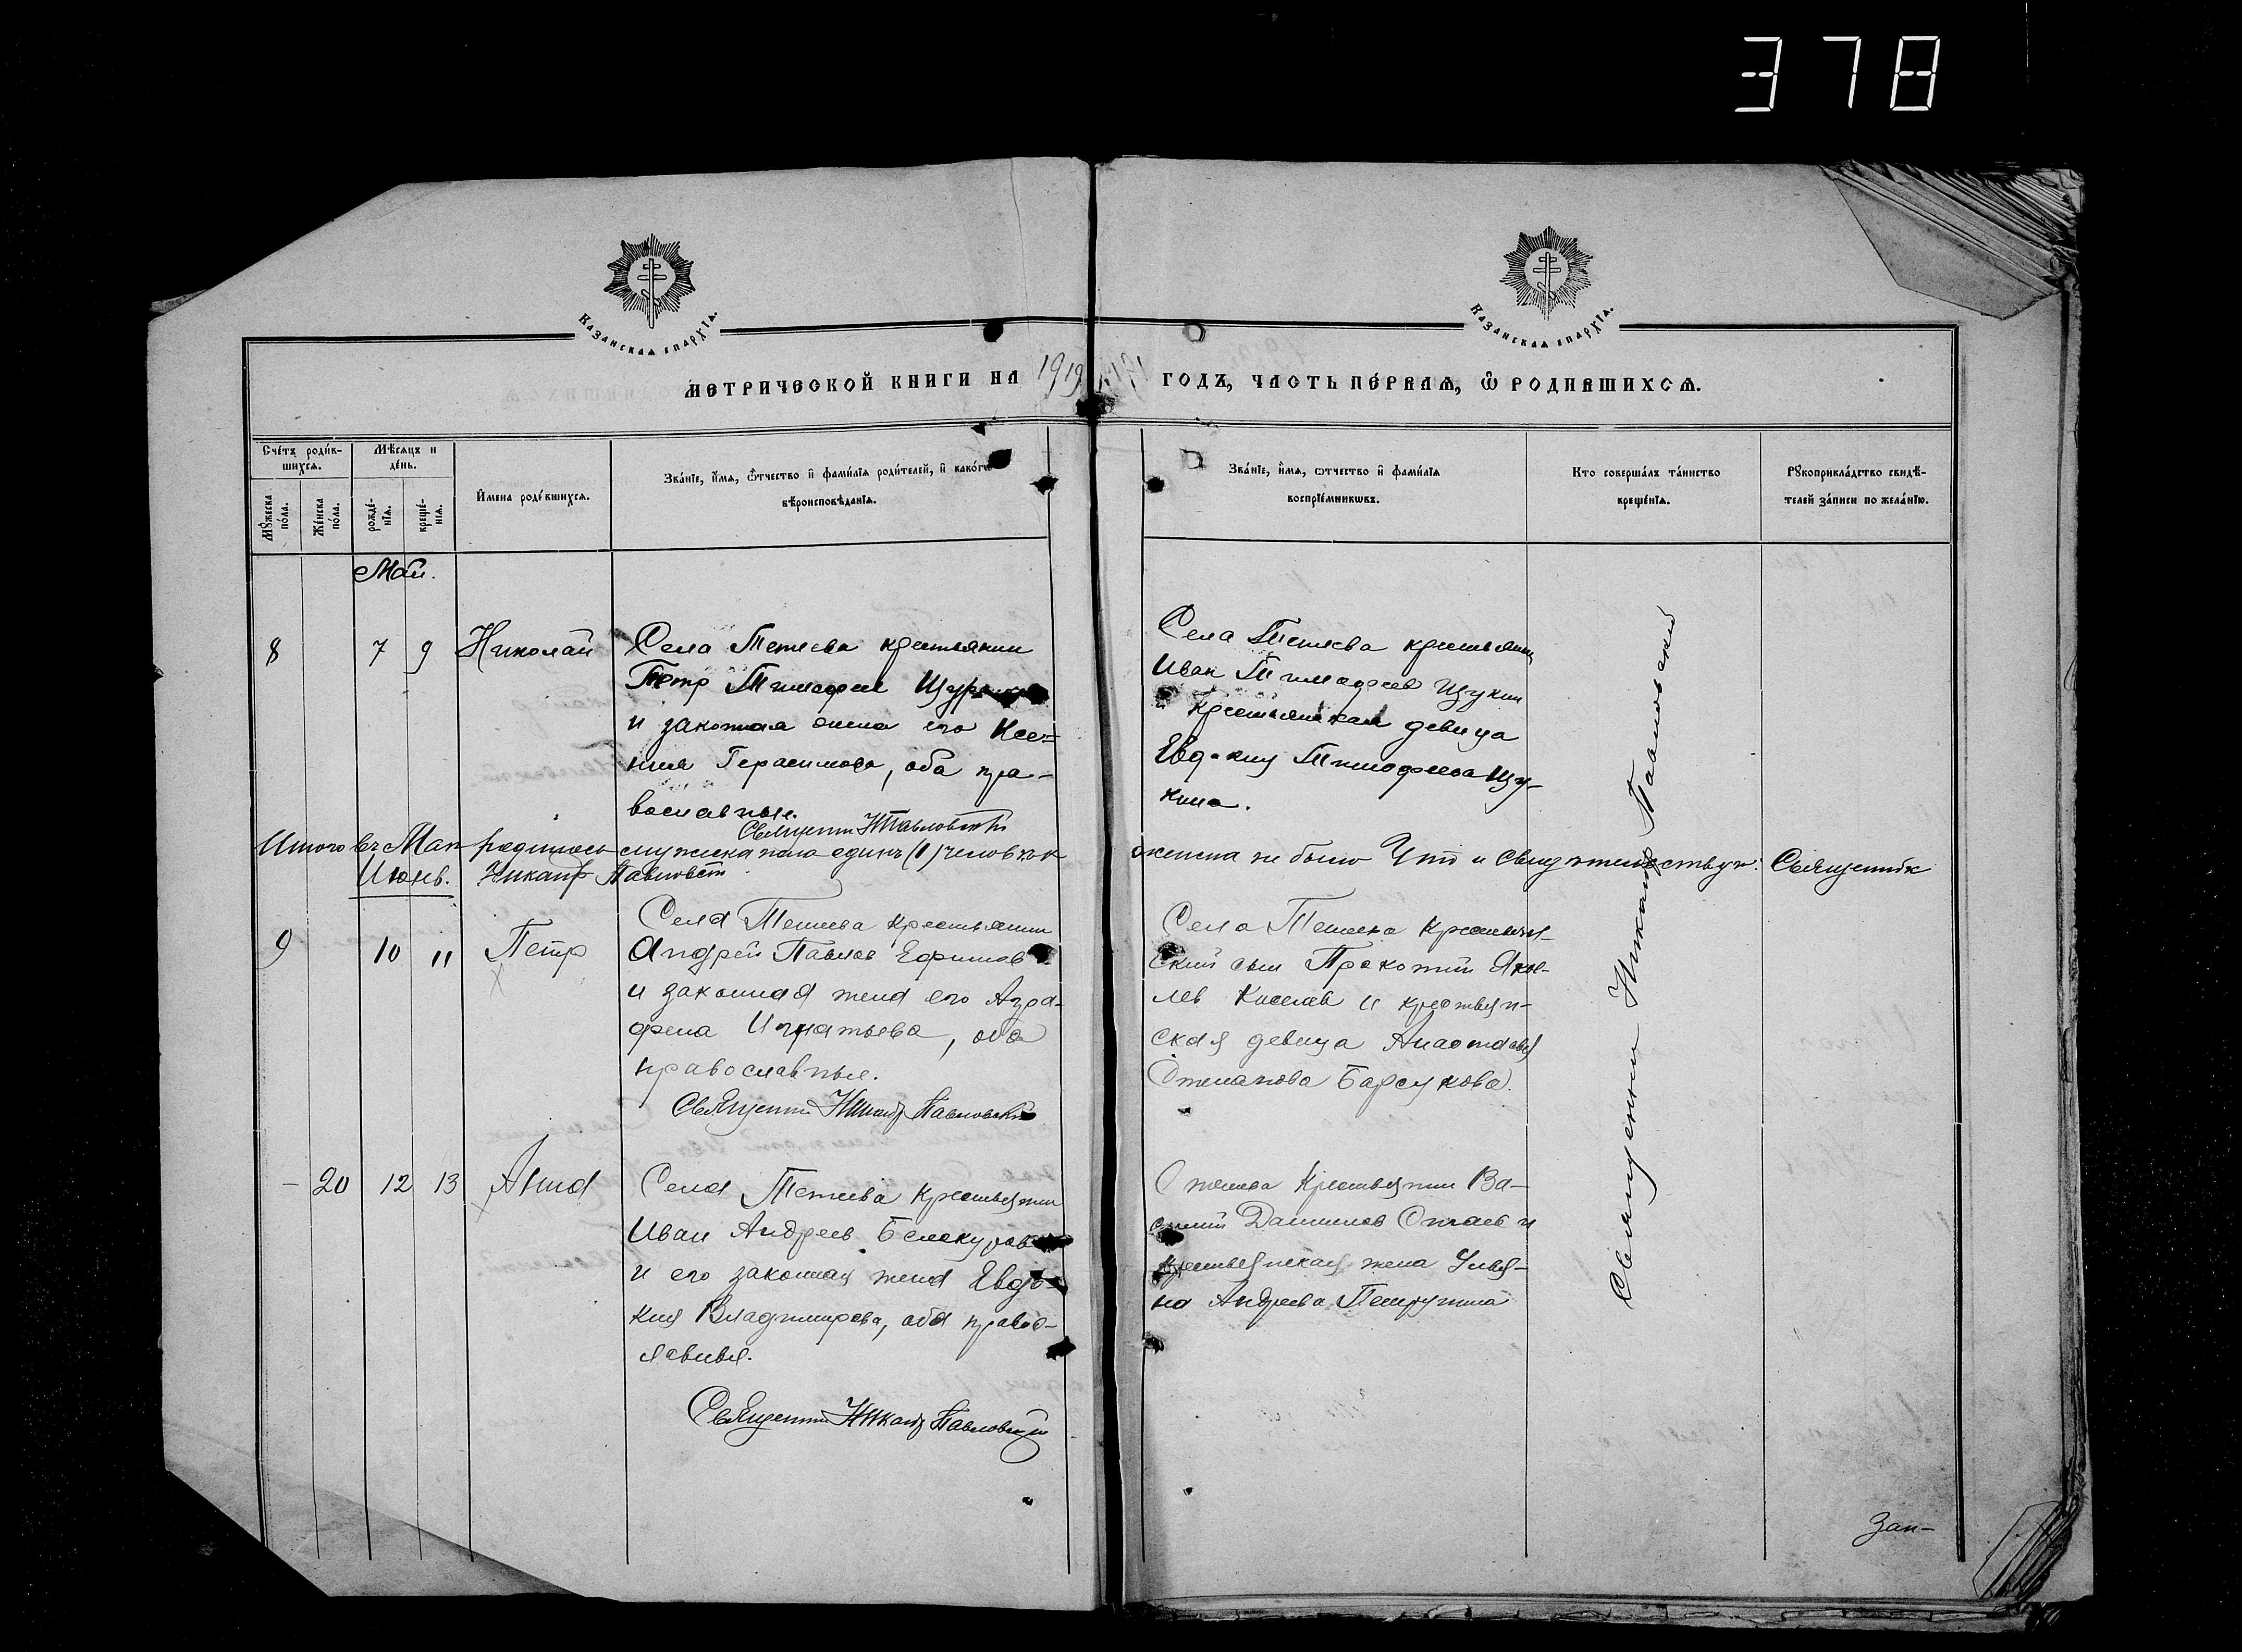 378
Казанская епархїѧ.
Казанская епархїѧ.
Метрической книги на 1919 годъ, часть пе́рваѧ, ѡ҆ родившихсѧ.
Сче́тъ роди́в-
шихсѧ.
Мѣ́сѧцъ и
де́нь.
Мꙋ́жеска
по́ла.
Же́нска
по́ла.
рожде́-
нїѧ.
креще́-
нїѧ.
И҆мена роди́вшихсѧ.
Зва́нїе, и҆́мѧ, ѻ҆́тчество и҆ фами́лїѧ роди́телей, и҆ како́гѡ
вѣроисповѣ́данїѧ.
Зва́нїе, и҆́мѧ, ѻтчество и҆ фами́лїѧ
воспрїе́мникѡвъ.
Кто соверша́лъ та́инство
креще́нїѧ.
Рꙋкоприкла́дство свидѣ́-
телей за́писи по жела́нїю.
Май.
8 7 9 Николай
Села Тетеева крестьянин
Петр Тимофеев
и законная жена его Ксе-
ния Герасимова, оба пра-
вославные.
Священник Н Павловский
Села Тетеева крестьянин
Иван Тимофеев Щукин
и крестьянская девица
Евдокия Тимофеева Щу-
кина.
Итого въ Мае родилось мужска пола одинъ (1) человѣк
женска не было Что и свидѣтельствую: Священник
Никанр Павловский
Июнь.
9 10 11 Петр
Села Тетеева крестьянин
Андрей Павлов Ефимов
и законная жена его Агра-
фена Игнатьева, оба
православные.
Священник Никанр Павловский
Села Тетеева крестьян-
ский сын Прокопий Яков-
лев Киселев и крестьян-
ская девица Анастасия
Степанова Барсукова.
- 20 12 13 Анна
Села Тетеева крестьянин
Иван Андреев Белокуров
и его законная жена Евдо-
кия Владимирова, оба право-
славные.
Священник Никанр Павловский
С Тетеева крестьянин Ва-
силий Данилов и
крестьянская жена Улья-
на Андреева
Священник Никанр Павловский
Зап-